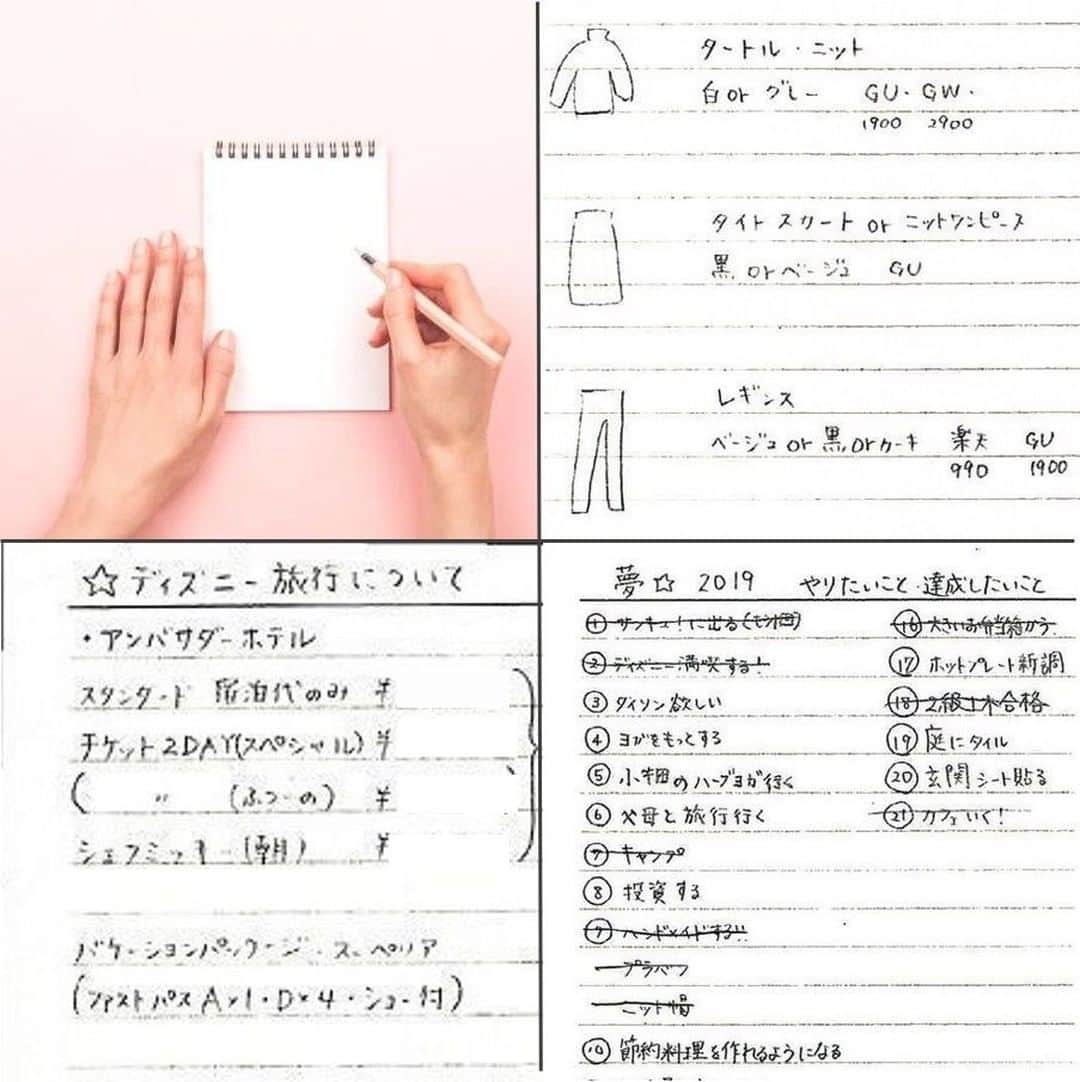 タートル・ニット
白 or グレー GU・GW・
1900 2900
タイト スカート or ニットワンピース
黒 or ベージュ GU
レギンス
ベージュ or 黒 or カーキ 楽天 GU
990 1900
☆ディズニー旅行について
・アンバサダーホテル
スタンダード 宿泊代のみ ¥
チケット2DAY(スペシャル) ¥
( 〃 (ふつーの) ¥
シェフミッキー(朝) ¥
バケーションパッケージ・スーペリア
(ファストパスA×1・D×4・ショー付)
夢☆ 2019 やりたいこと・達成したいこと
① サンキュ!に出る(モノ団)
② ディズニー満喫する!
③ ダイソン欲しい
④ ヨガをもっとする
⑤ 小畑のハーブヨガ行く
⑥ 父母と旅行行く
⑦ キャンプ
⑧ 投資する
⑨ ハンドメイドする!!
プラバン
ニット帽
⑩ 節約料理を作れるようになる
⑯ 大きいお弁当箱かう
⑰ ホットプレート新調
⑱ 2級土木合格
⑲ 庭にタイル
⑳ 玄関シート貼る
㉑ カフェいく!